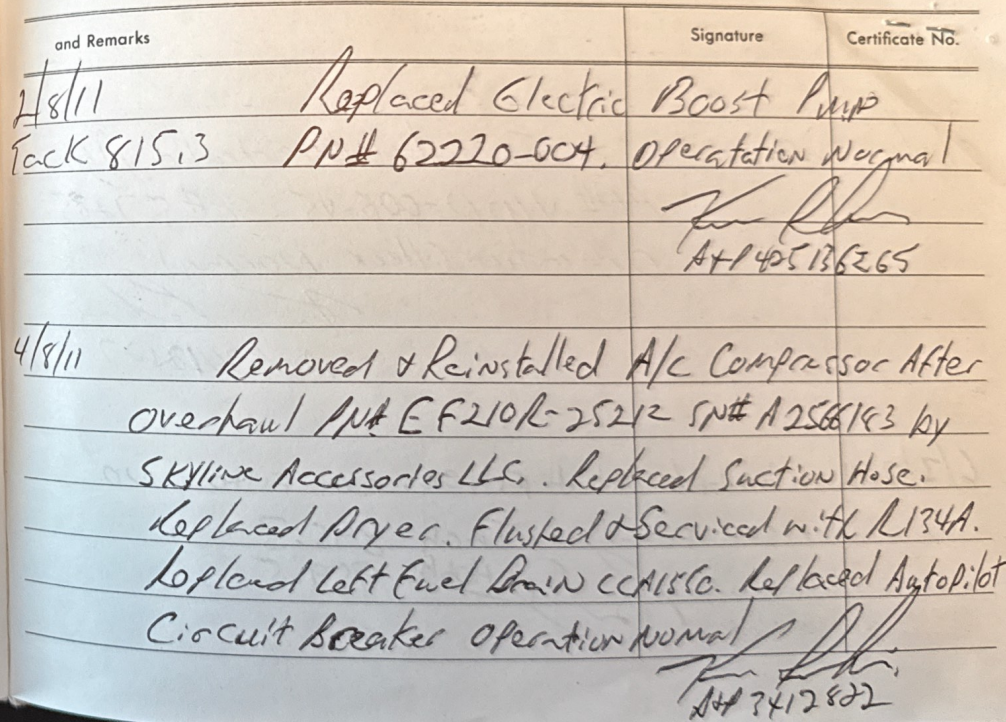 and Remarks Signature Certificate No.
2/8/11 Replaced Electric Boost Pump
Tack 815.3 PN# 62220-004. Operatation Normal
A+P 425136265
4/8/11 Removed & Reinstalled A/C Compressor After
overhaul PN# EF210R-25212 SN# A2566193 by
Skyline Accessories LLC. . Replaced Suction Hose.
Replaced Dryer. Flushed & Serviced with R134A.
Replaced Left Fuel Drain Replaced AutoPilot
Circuit Breaker Operation Nomal
A+P 3412822